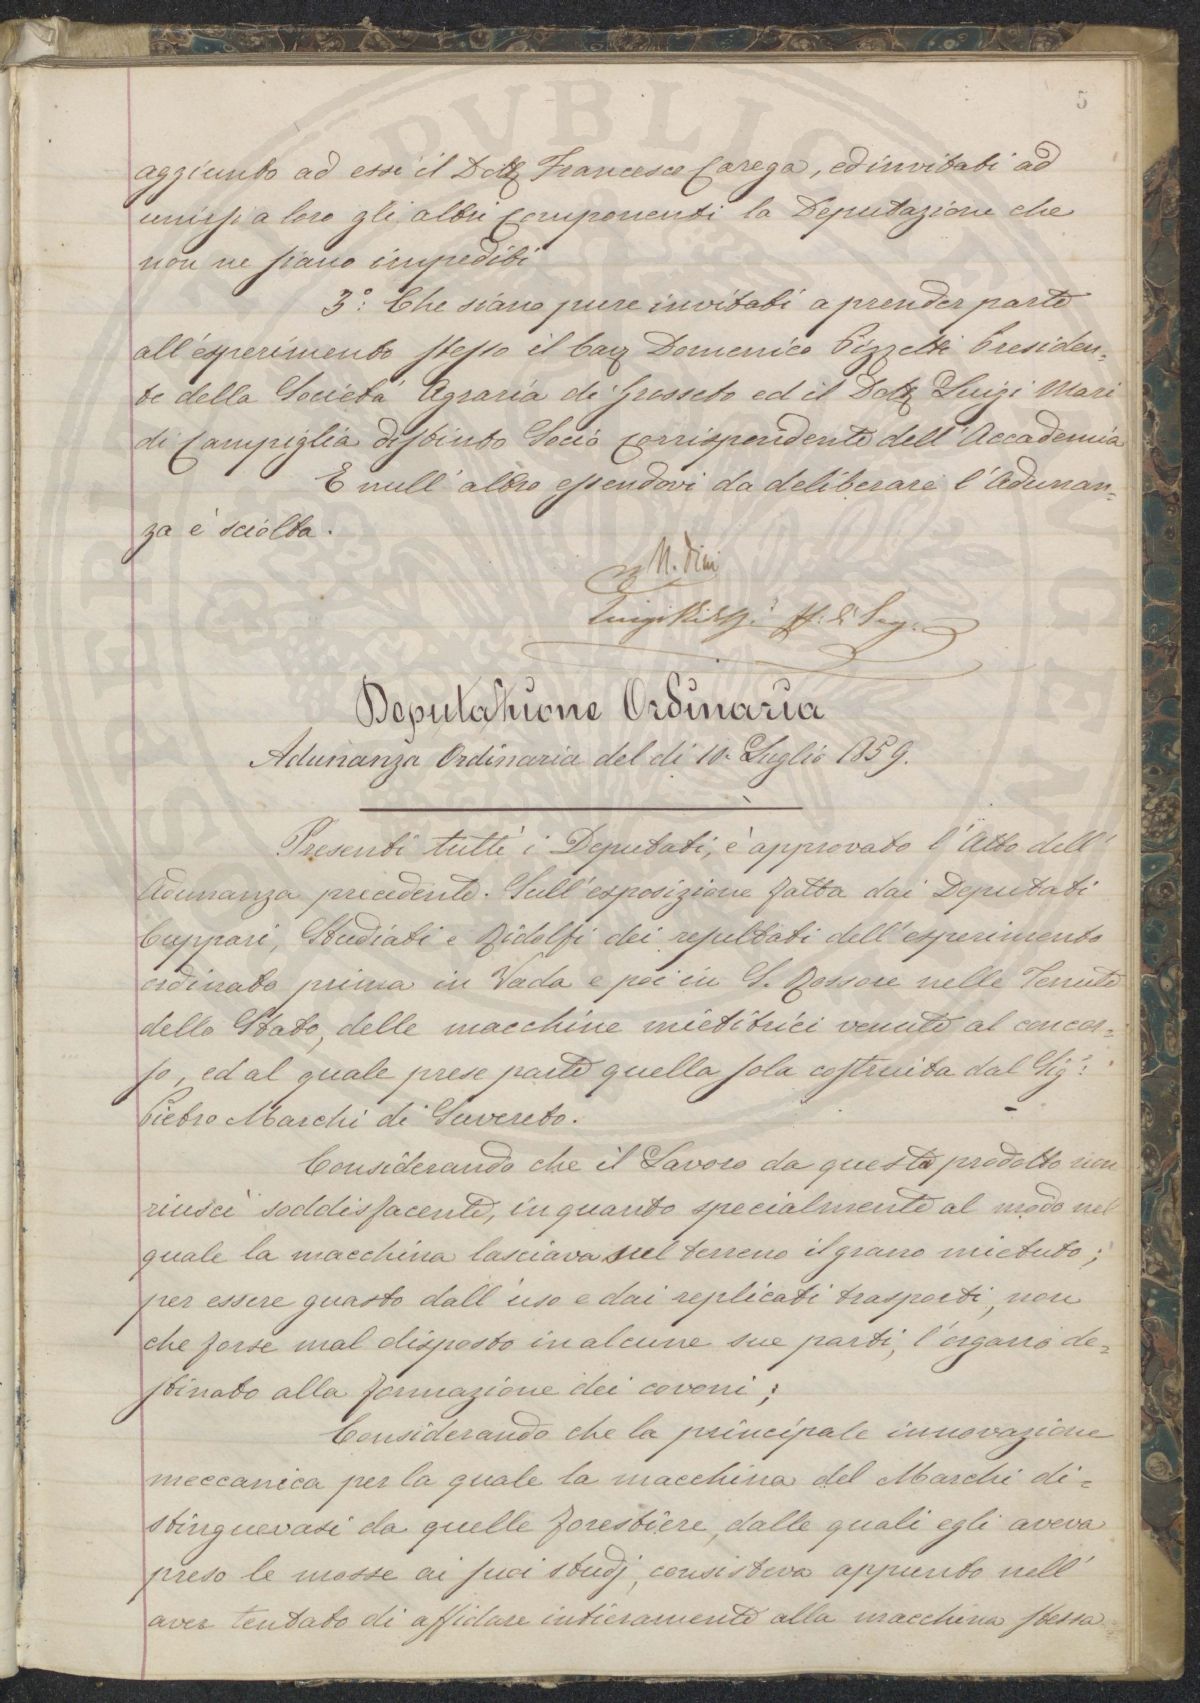 5
aggiunto ad essi il Dott Francesco Carega, ed invitati ad
unirsi a loro gli altri componenti la Deputazione che
non ne siano impediti
3°: Che siano pure invitati a prender parte
all'esperimento stesso il Cav Domenico Pizzetti Presiden=
te della Società Agraria di Grosseto ed il Dott Luigi Mari
di Campiglia distinto Socio corrispondente dell'Accademia
E null'altro essendovi da deliberare l'Adunan=
za è sciolta.
Luigi Ridolfi ff. di Seg.
Deputazione Ordinaria
Adunanza Ordinaria del dì 10 Luglio 1859.
Presenti tutti i Deputati, è approvato l'Atto dell'
Adunanza precedente. Sull'esposizione fatta dai Deputati
Cuppari, Studiati e Ridolfi dei resultati dell'esperimento
ordinato prima in Vada e poi in S. Rossore nelle Tenute
dello Stato, delle macchine mietitrici venute al concor=
so, ed al quale prese parte quella sola costruita dal Sig:
Pietro Marchi di Suvereto.
Considerando che il Lavoro da questa prodotto non
riuscì soddisfacente, in quanto specialmente al modo nel
quale la macchina lasciava sul terreno il grano mietuto;
per essere guasto dall'uso e dai replicati trasporti, non
che forse mal disposto in alcune sue parti, l'organo de=
stinato alla formazione dei covoni;
Considerando che la principale innovazione
meccanica per la quale la macchina del Marchi di=
stinguevasi da quelle forestiere, dalle quali egli aveva
preso le mosse ai suoi studj, consisteva appunto nell'
aver tentato di affidare intieramente alla macchina stessa